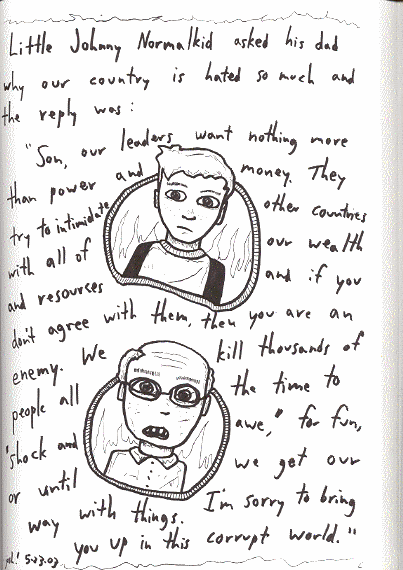 Little Johnny Normalkid asked his dad
why our country is hated so much and
the reply was:
"Son, our leaders want nothing more
than power and money. They
try to intimidate other countries
with all of our wealth
and resources and if you
don't agree with them, then you are an
enemy. We kill thousands of
people all the time to
"shock and awe," for fun,
or until we get our
way with things. I'm sorry to bring
you up in this corrupt world."
5-23-03